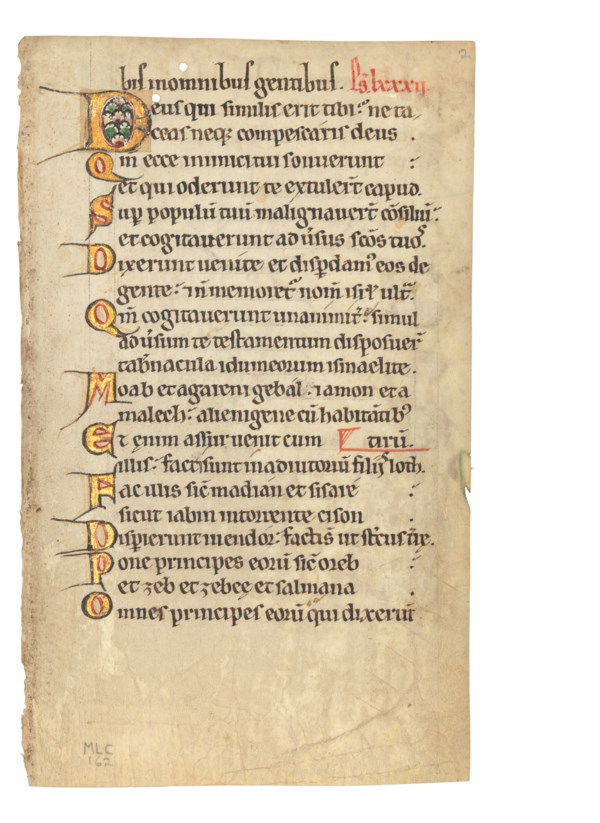 2
bis inomnibus gentibus. ps̄ lxxxij.
Deus qui similis erit tibi: ne ta
ceas neq; compescaris deus .
Qm̄ ecce inimici tui sonuerunt :
et qui oderunt te extulerr̄t capud.
Sup̱ populū tuū malignauert̄ cōsiliū:
et cogitauerunt aduˀsus sc̄os tuos.
Dixerunt uenite et disꝑdamˀ eos de
gente: & nō memoretˀ nom̄ isrl̄ ultˀ.
Qm̄ cogitauerunt unanimitˀ: simul
aduˀsum te testamentum disposuerˀ
tabˀnacula idumeorum ismaelite.
Moab et agareni gebal: & amon et a
malech: alienigene cū habitātibˀ
Et enim assur uenit cum tirū.
illis: facti sunt in adiutoriū filijs loth.
Fac illis sic̄ madian et sisare :
sicut iabin intorrente cison .
Disperierunt inendor: facti s̄ ut stˀcus tˀre.
Pone principes eorū sic̄ oreb :
et zeb et zebee et salmana .
Omnes principes eorū qui dixerūt
MLC
162